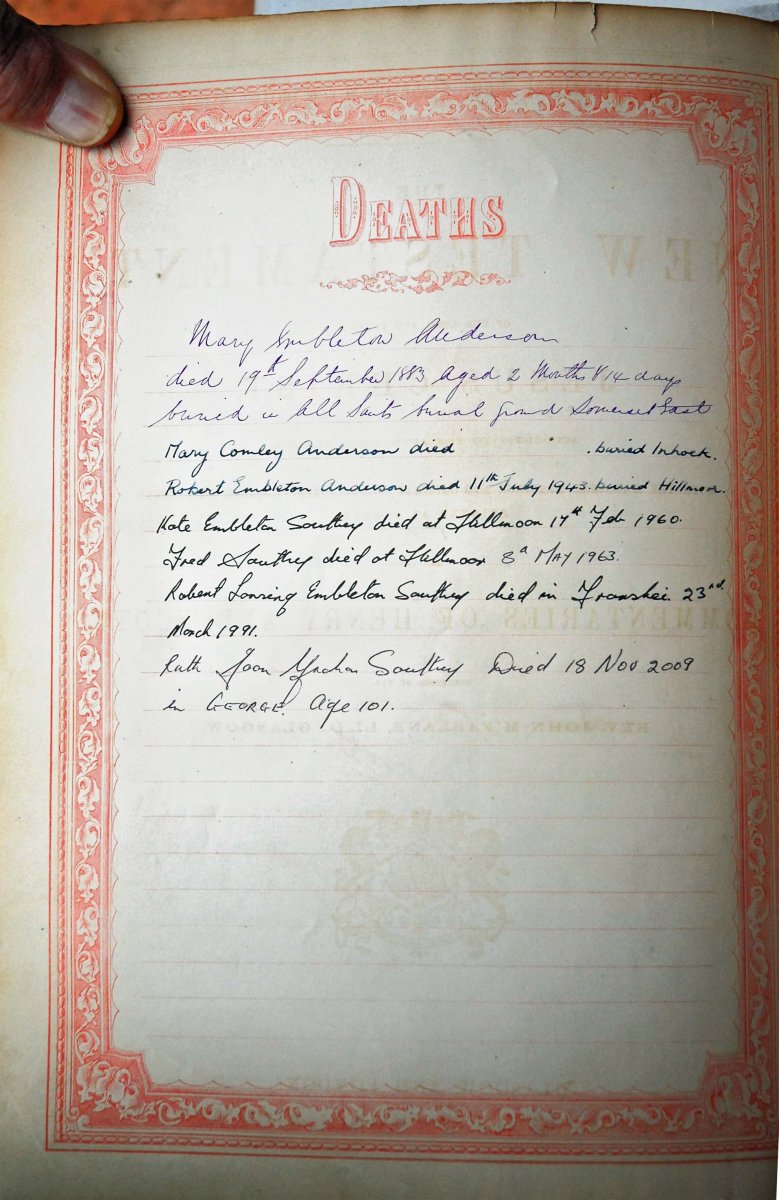 DEATHS
Mary Embleton Anderson
died 19th September 1883 Aged 2 Months & 14 days
buried in All Saints burial ground Somerset East
Mary Comley Anderson died . buried Inhoek.
Robert Embleton Anderson died 11th July 1943. buried Hillmoor.
Kate Embleton Southey died at Hillmoor 17th Feb 1960.
Fred Southey died at Hillmoor 8a MAY 1963.
Robert Embleton Southey died in Transkei 23rd
March 1991.
Ruth Joan Southey Died 18 Nov 2009
in GEORGE. Age 101.
NEW TESTAMENT
COMMENTARIES OF HENRY
REV. JOHN M'FARLANE, LL.D., GLASGOW.